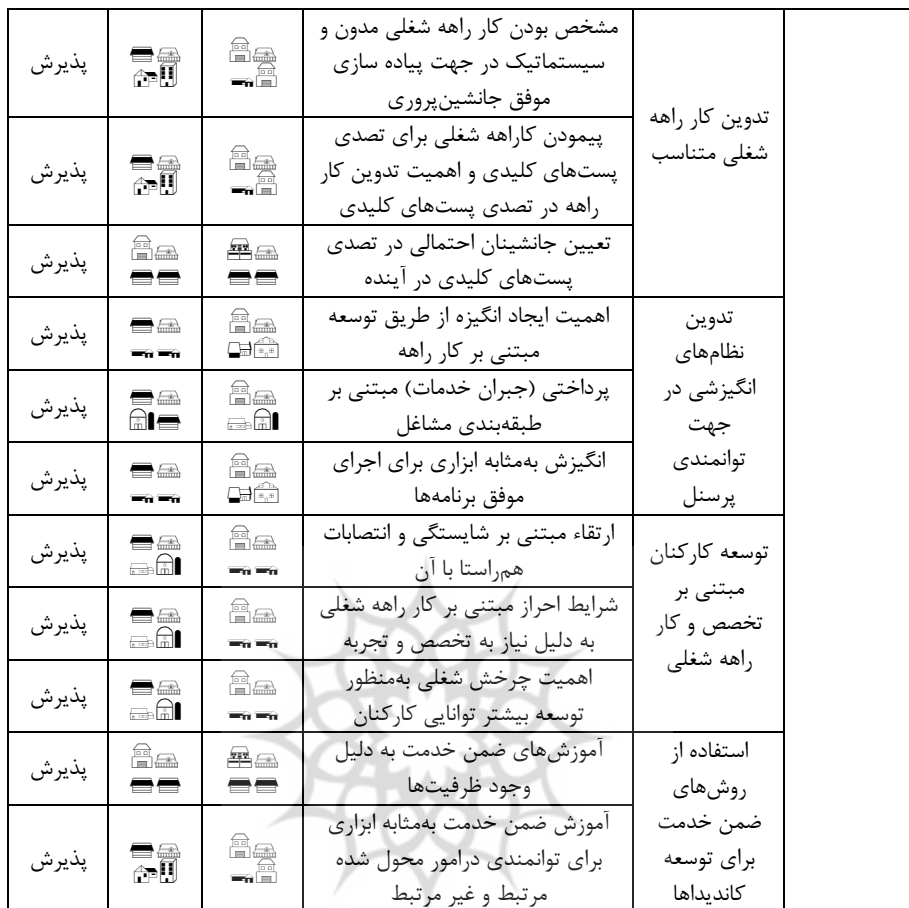 تدوین کار راهه
شغلی متناسب
مشخص بودن کار راهه شغلی مدون و
سیستماتیک در جهت پیاده سازی
موفق جانشین‌پروری
پذیرش
پیمودن کاراهه شغلی برای تصدی
پست‌های کلیدی و اهمیت تدوین کار
راهه در تصدی پست‌های کلیدی
پذیرش
تعیین جانشینان احتمالی در تصدی
پست‌های کلیدی در آینده
پذیرش
تدوین
نظام‌های
انگیزشی در
جهت
توانمندی
پرسنل
اهمیت ایجاد انگیزه از طریق توسعه
مبتنی بر کار راهه
پذیرش
پرداختی (جبران خدمات) مبتنی بر
طبقه‌بندی مشاغل
پذیرش
انگیزش به‌مثابه ابزاری برای اجرای
موفق برنامه‌ها
پذیرش
توسعه کارکنان
مبتنی بر
تخصص و کار
راهه شغلی
ارتقاء مبتنی بر شایستگی و انتصابات
هم‌راستا با آن
پذیرش
شرایط احراز مبتنی بر کار راهه شغلی
به دلیل نیاز به تخصص و تجربه
پذیرش
اهمیت چرخش شغلی به‌منظور
توسعه بیشتر توانایی کارکنان
پذیرش
استفاده از
روش‌های
ضمن خدمت
برای توسعه
کاندیداها
آموزش‌های ضمن خدمت به دلیل
وجود ظرفیت‌ها
پذیرش
آموزش ضمن خدمت به‌مثابه ابزاری
برای توانمندی درامور محول شده
مرتبط و غیر مرتبط
پذیرش